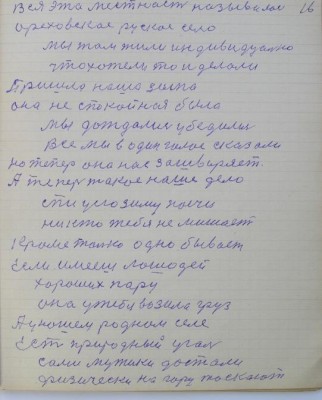 Вся эта местность называлас 16
ореховское руское село
мы там жили индивидуално
что хотель то и делали
Пришла наша зима
она не спокойная была
мы дождали убедили
Все мы в один голос сказали
но тепер она нас зашвыряет.
А тепер такое наше дело
спи у
ни кто тебя не мишает
Кроме толко одно бывает
Если имееш лошодей
хороших пару
она у тебя возила груз
А у нашем родном селе
Есть природный угал
сами мужики достали
физически на гару таскают